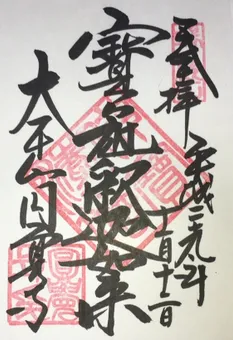 奉拝 平成二九年
十一月十二日
宝冠釈迦如来
大本山円覚寺